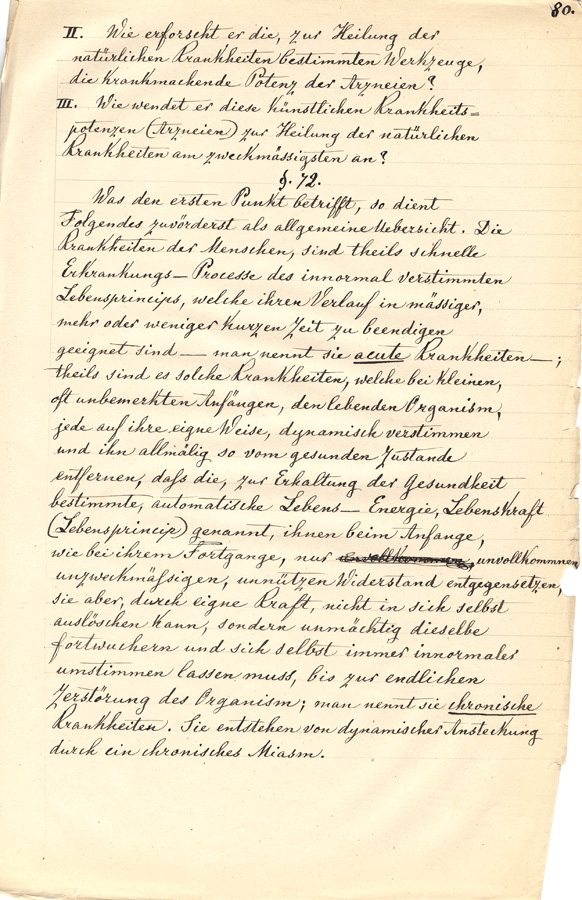 80.
II. Wie erforscht er die, zur Heilung der
natürlichen Krankheiten bestimmten Werkzeuge,
die krankmachende Potenz der Arzneien?
III. Wie wendet er diese künstlichen Krankheits=
potenzen (Arzneien) zur Heilung der natürlichen
Krankheiten am zweckmässigsten an?
§. 72.
Was den ersten Punkt betrifft, so dient
Folgendes zuvörderst als allgemeine Uebersicht. Die
Krankheiten der Menschen, sind theils schnelle
Erkrankungs—Processe des innormal verstimmten
Lebensprincips, welche ihren Verlauf in mässiger,
mehr oder weniger kurzen Zeit zu beendigen
geeignet sind — man nennt sie acute Krankheiten —;
theils sind es solche Krankheiten, welche bei kleinen,
oft unbemerkten Anfängen, den lebenden Organism,
jede auf ihre eigne Weise, dynamisch verstimmen
und ihn allmälig so vom gesunden Zustande
entfernen, daſs die, zur Erhaltung der Gesundheit
bestimmte, automatische Lebens—Energie, Lebenskraft
(Lebensprincip) genannt, ihnen beim Anfange,
wie bei ihrem Fortgange, nur unvollkommnen,
unzweckmäſsigen, unnützen Widerstand entgegensetzen,
sie aber, durch eigne Kraft, nicht in sich selbst
auslöschen kann, sondern unmächtig dieselbe
fortwuchern und sich selbst immer innormaler
umstimmen lassen muss, bis zur endlichen
Zerstörung des Organism; man nennt sie chronische
Krankheiten. Sie entstehen von dynamischer Ansteckung
durch ein chronisches Miasm.